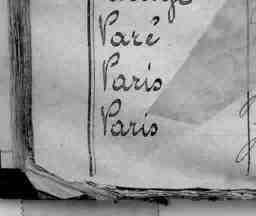 Paré
Paris
Paris